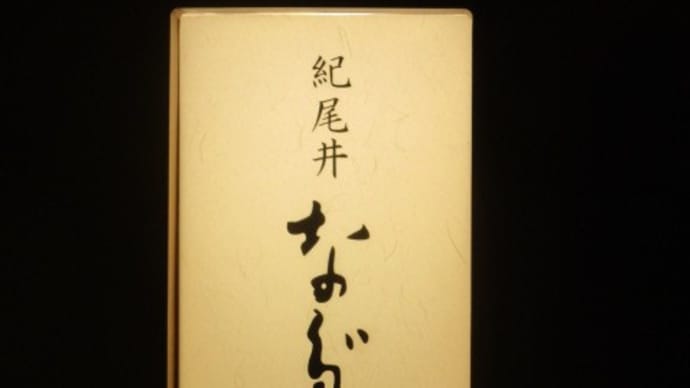 紀尾井
なだ